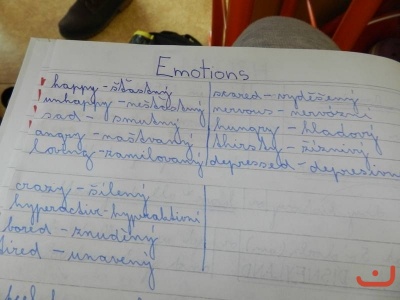 Emotions
! happy - šťastný
! unhappy - nešťastný
! sad - smutný
! angry - naštvaný
loving - zamilovaný
scared - vyděšený
nervous - nervózní
hungry - hladový
thirsty - žíznivý
depressed - depresivní
crazy - šílený
hyperactive - hyperaktivní
bored - znuděný
tired - unavený
feel